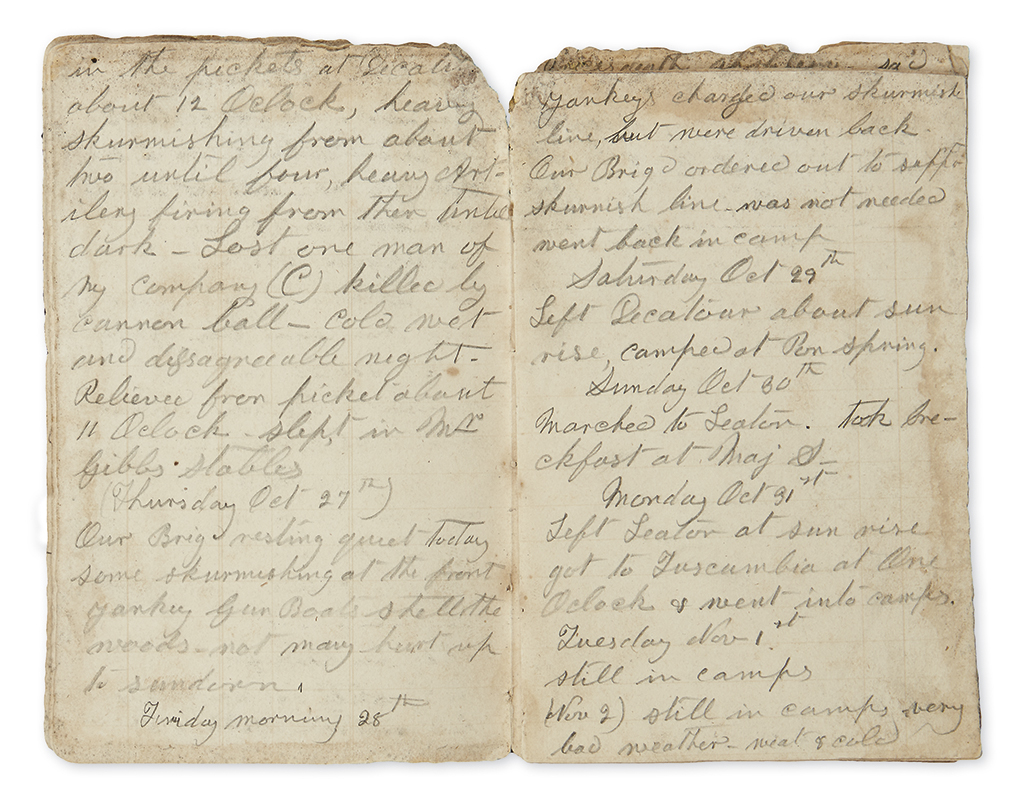 in the pickets at Decatu
about 12 Oclock, heavy
skurmishing from about
two until four, heavy Art-
ilery firing from then until
dark - Lost one man of
my company (C) killed by
cannon ball - cold wet
and dissagreeable night -
Relieved from picket about
11 Oclock - slept in Mr
Gibbs stables
(Thursday Oct 27th)
Our Brig resting quiet today
some skurmishing at the front
yankey Gun Boats shell the
woods - not many hurt up
to sundown.
Friday morning 28th
yankeys charged our skurmish
line, but were driven back
Our Brigd ordered out to
skurnish line - was not needed
went back in camp
Saturday Oct 29th
Left Decatour about sun
rise, camped at spring.
Sunday Oct 30th
Marched to Leaton. took bre-
ckfast at Maj S-
Monday Oct 31st
Left Leaton at sun rise
got to Tuscumbia at One
Oclock & went into camps.
Tuesday Nov 1st
still in camps
(Nov 2) still in camps very
bad weather - weat & cold